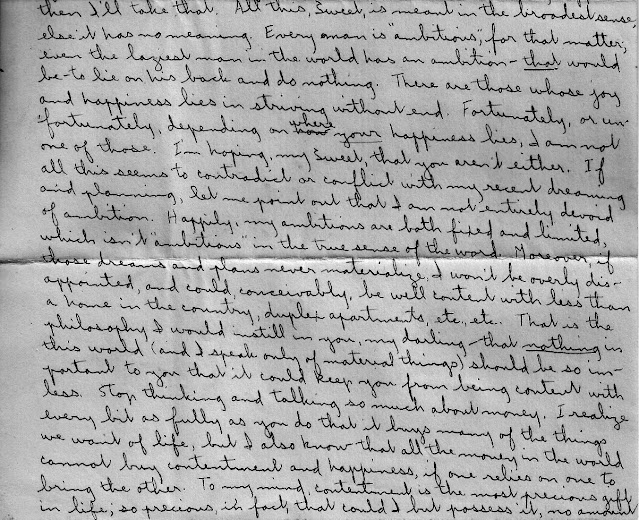 then I'll take that. All this, Sweet, is meant in the broadest sense,
else it has no meaning. Every man is "ambitious", for that matter;
even the laziest man in the world has an ambition - that would
be - to lie on his back and do nothing. There are those whose joy
and happiness lies in striving without end. Fortunately, or un-
fortunately, depending on how where your happiness lies, I am not
one of those. I'm hoping, my Sweet, that you aren't either. If
all this seems to contradict or conflict with my recent dreaming
and planning, let me point out that I am not entirely devoid
of ambition. Happily, my ambitions are both fixed and limited,
which isn't "ambitions" in the true sense of the word. Moreover, if
those dreams and plans never materialize, I won't be overly dis-
appointed, and could, conceivably, be well content with less than
a home in the country, duplex apartments, etc, etc. That is the
philosophy I would instill in you, my darling - that nothing in
this world (and I speak only of material things) should be so im-
portant to you that it could keep you from being content with
less. Stop thinking and talking so much about money. I realize
every bit as fully as you do that it buys many of the things
we want of life, but I also know that all the money in the world
cannot buy contentment and happiness, if one relies on one to
bring the other. To my mind, contentment is the most precious gift
in life; so precious, in fact, that could I but possess it, no amount